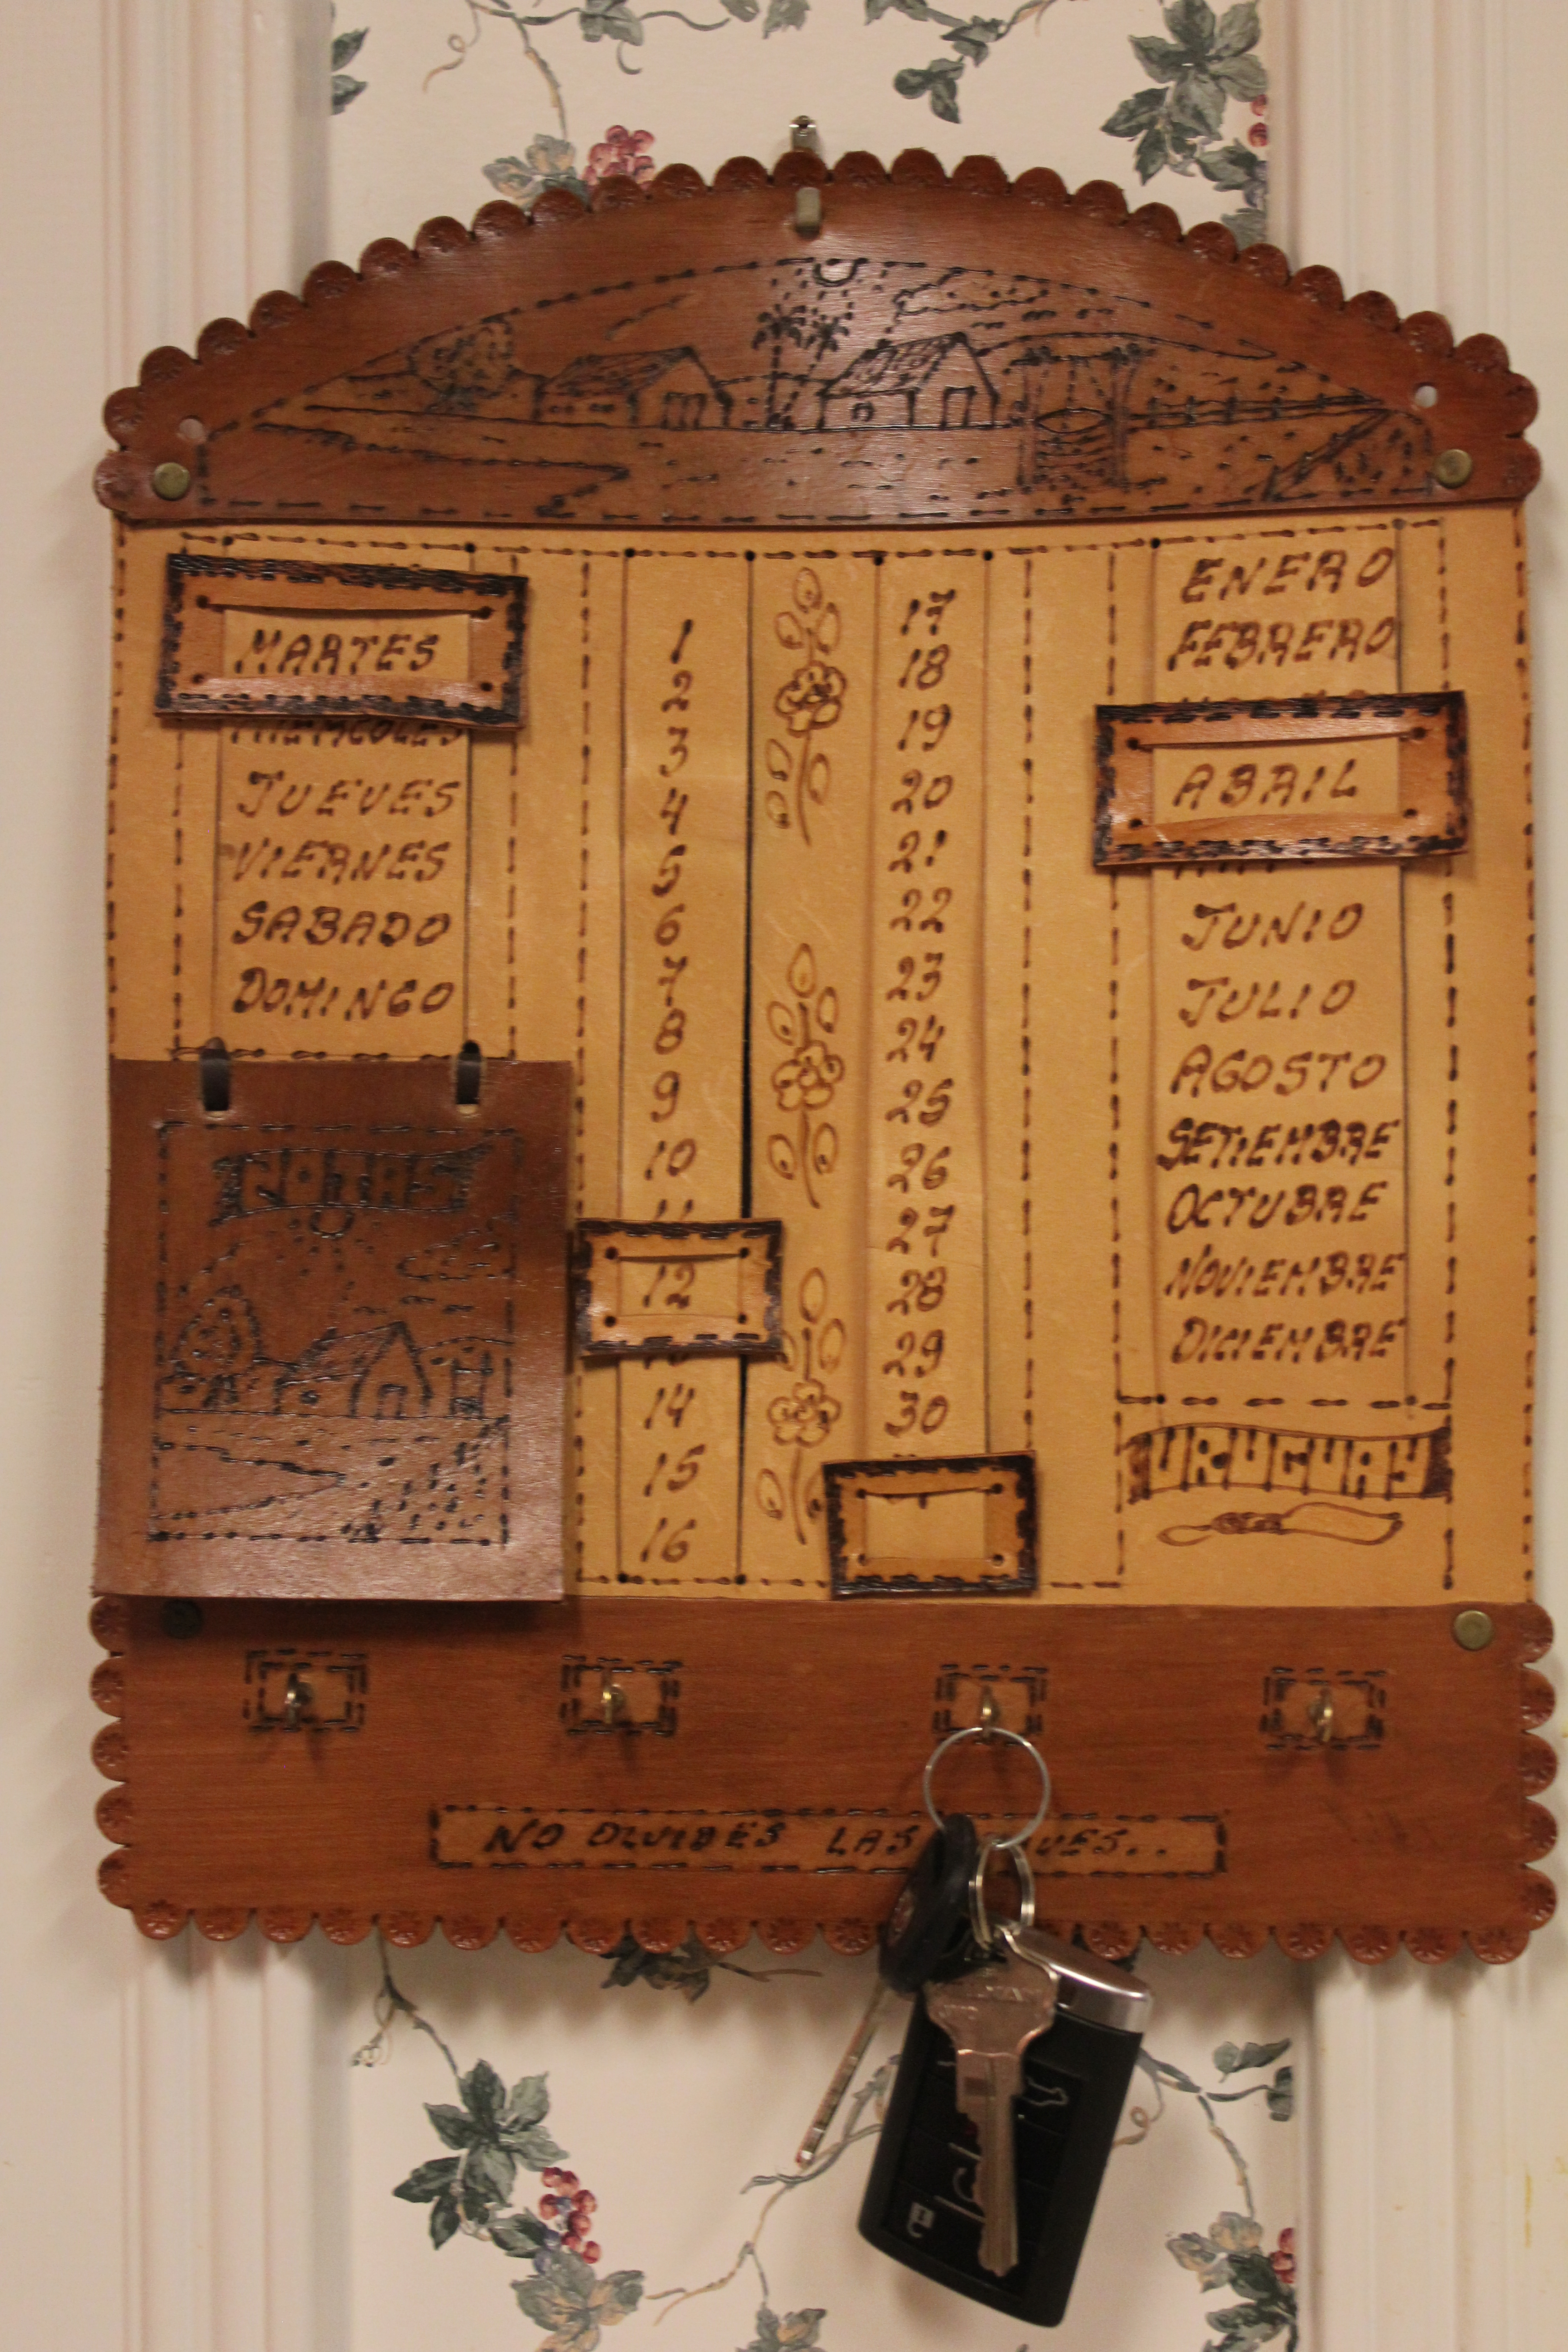 MARTES
MIERCOLES
JUEVES
VIERNES
SABADO
DOMINGO
NOTAS
1
2
3
4
5
6
7
8
9
10
11
12
14
15
16
17
18
19
20
21
22
23
24
25
26
27
28
29
30
ENERO
FEBRERO
ABRIL
JUNIO
JULIO
AGOSTO
SETIEMBRE
OCTUBRE
NOVIEMBRE
DICIEMBRE
URUGUAY
NO OLVIDES LAS